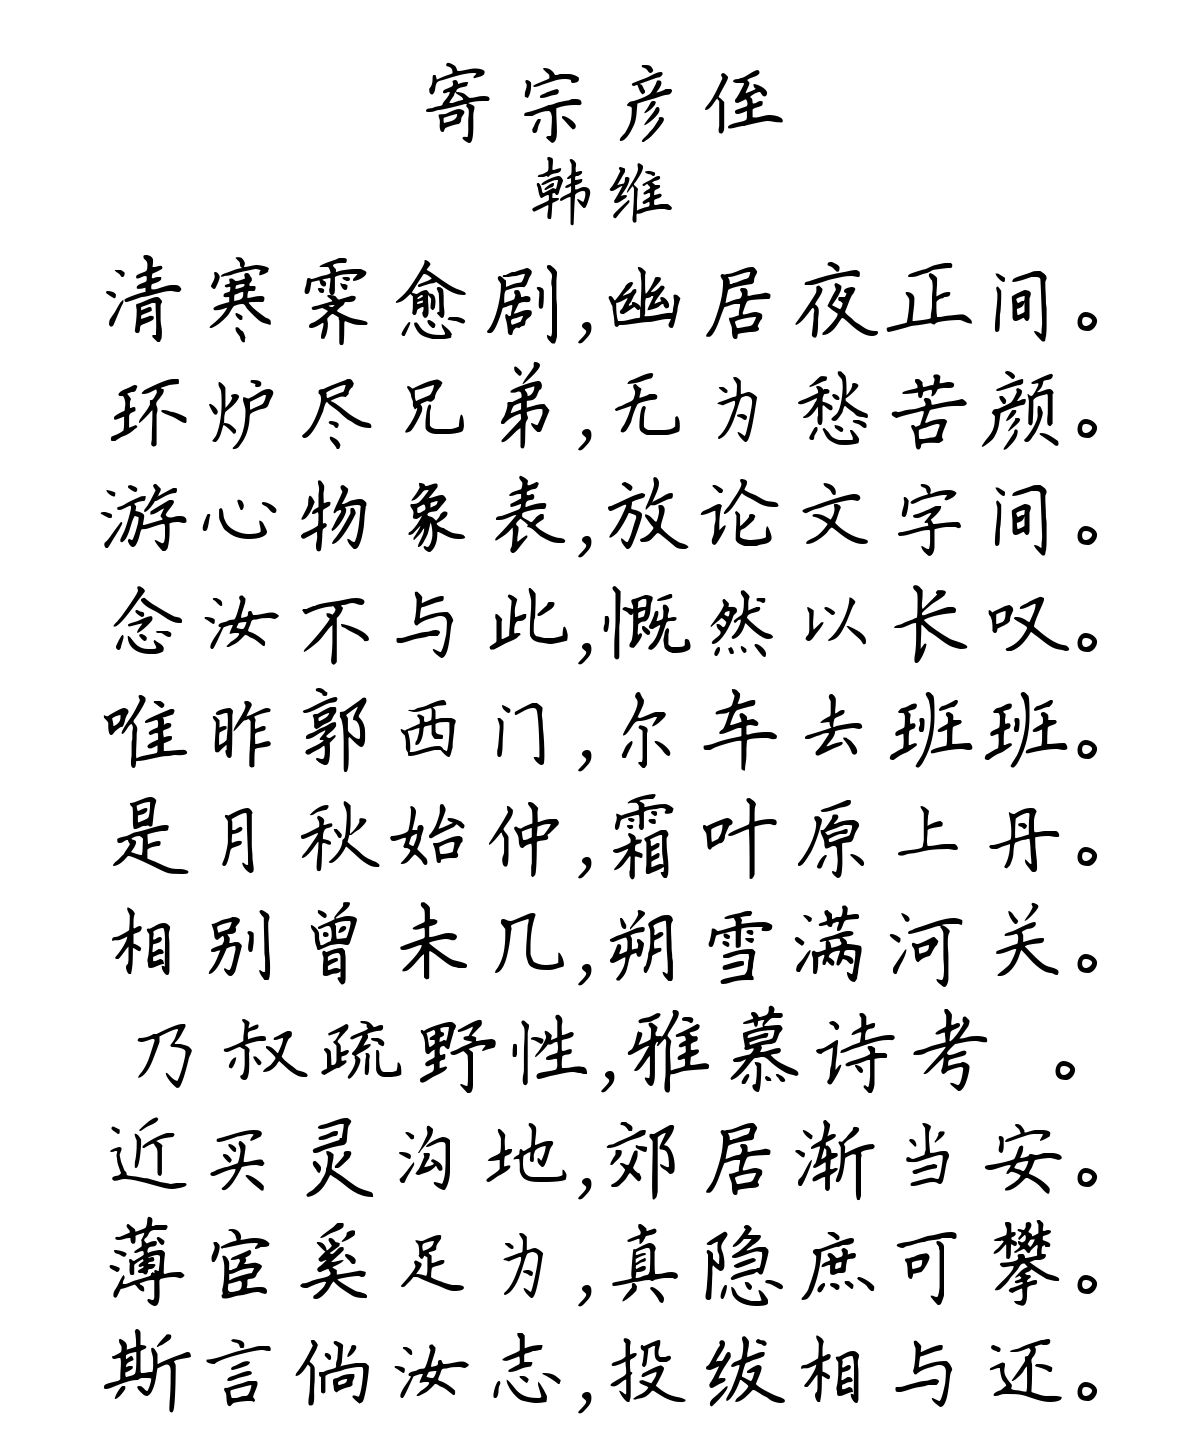 寄宗彦侄
韩维
清寒霁愈剧,幽居夜正间。
环炉尽兄弟,无为愁苦颜。
游心物象表,放论文字间。
念汝不与此,慨然以长叹。
唯昨郭西门,尔车去班班。
是月秋始仲,霜叶原上丹。
相别曾未几,朔雪满河关。
乃叔疏野性,雅慕诗考 。
近买灵沟地,郊居渐当安。
薄宦奚足为,真隐庶可攀。
斯言倘汝志,投绂相与还。